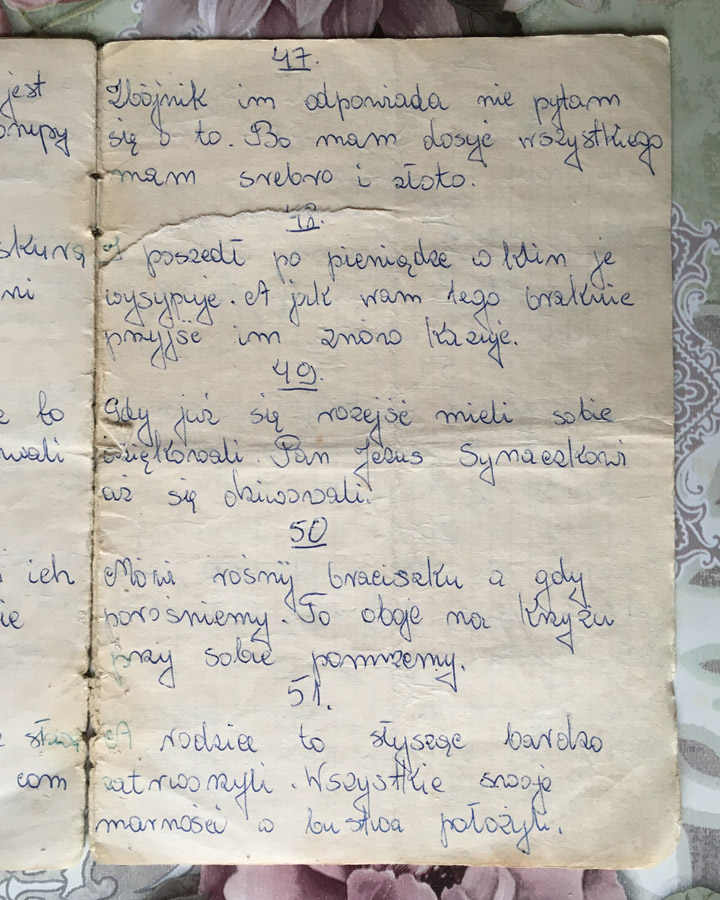 jest
skurą
ni
bo
wali
ich
ie
com
47.
Zbójnik im odpowiada nie pytam
się o to. Bo mam dosyć wszystkiego
mam srebro i złoto.
48.
A poszedł po pieniądze w klin je
wysypuje. A jak wam tego braknie
przyjść im znowo kazuje.
49.
Gdy już się rozejść mieli sobie
dziękowali. Pan Jezus Synaczkowi
aż się dziwowali.
50
Mówi rośnij braciszku a gdy
porośniemy. To oboje na krzyżu
przy sobie pomrzemy.
51.
A rodzice to słysząc bardzo
zatrwożyli. Wszystkie swoje
marności w bustwa położyli.